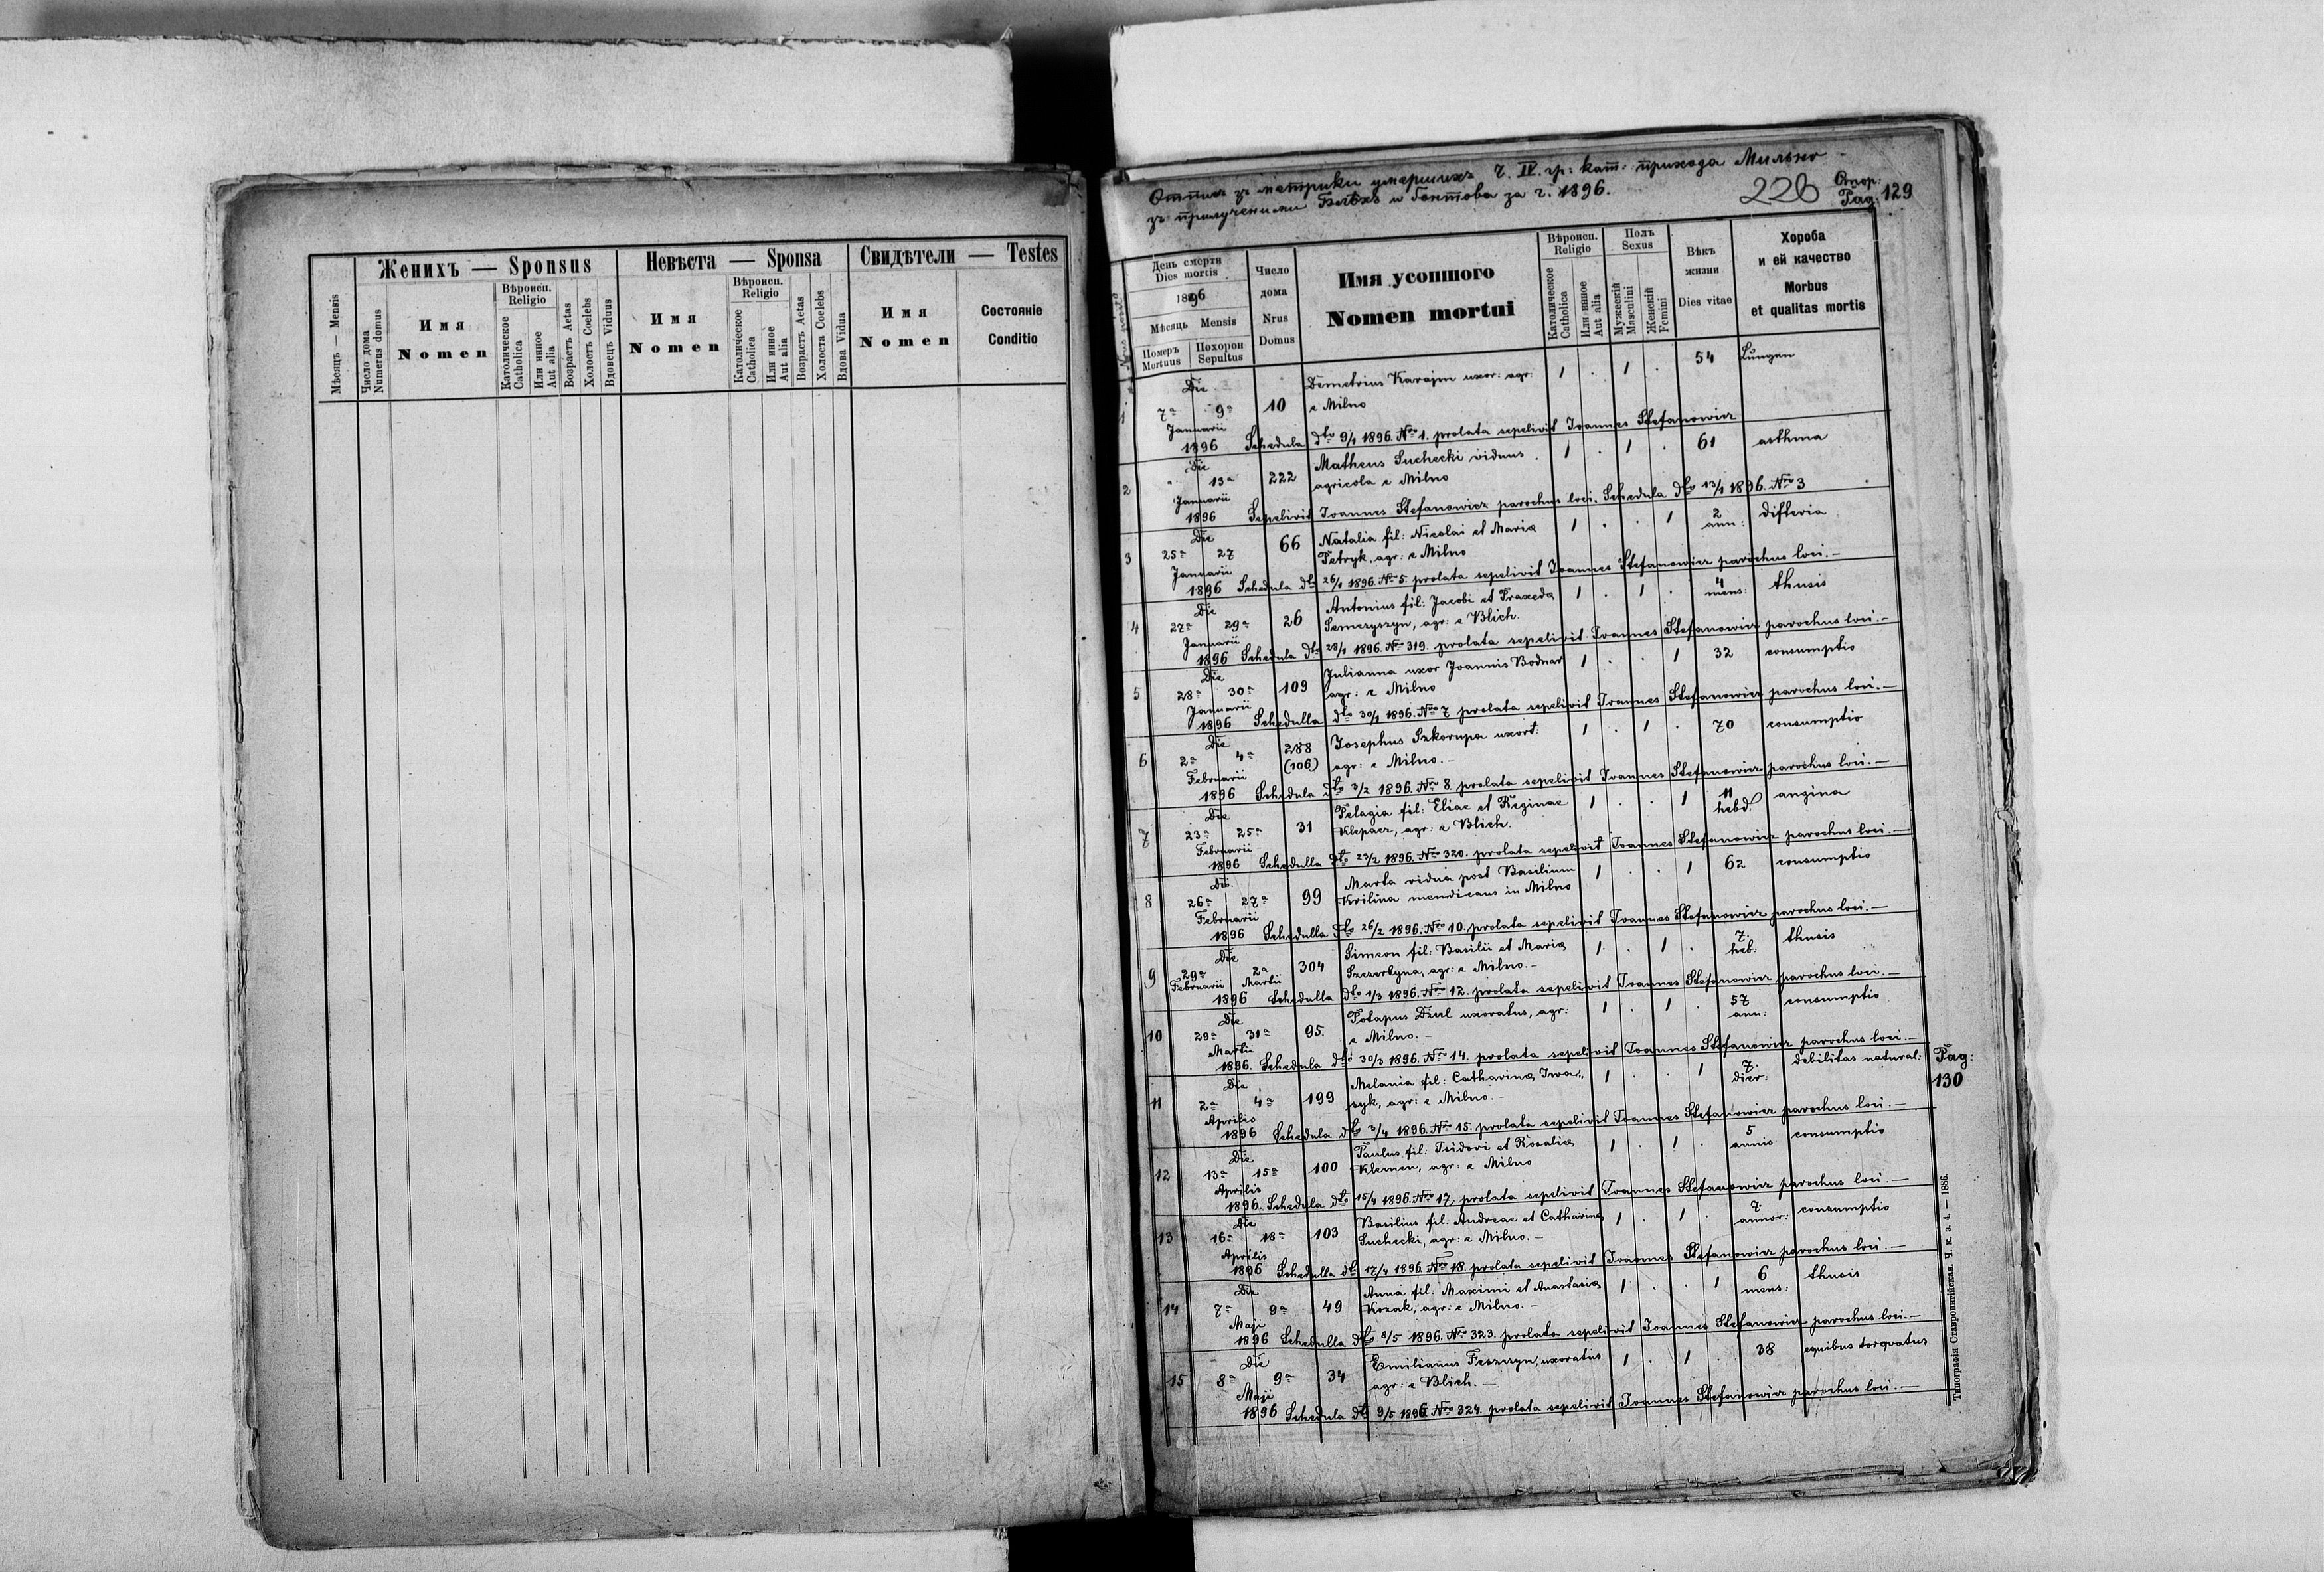 Женихъ — Sponsus
Невѣста — Sponsa
Свидѣтели — Testes
Мѣсяць — Mensis
Число дома
Numerus domus
Имя
Nomen
Вѣроисп.
Religio
Католическое
Catholica
Или инное
Aut alia
Возрастъ Aetas
Холостъ Coelebs
Вдовецъ Viduus
Имя
Nomen
Вѣроисп.
Religio
Католическое
Catholica
Или инное
Aut alia
Возрастъ Aetas
Холоста Coelebs
Вдова Vidua
Имя
Nomen
Состояніе
Conditio
Отпись зъ метрики умершихъ Ч. IV. гр: кат: прихода Мильно
зъ прилученіями Блѣхъ и Гонтова за г. 1896.
226
Стор:
Pag: 129
День смерти
Dies mortis
1896
Мѣсяць Mensis
Померъ
Mortuus
Похорон
Sepultus
Число
дома
Nrus
Domus
Имя усопшого
Nomen mortui
Вѣроисп.
Religio
Католическое
Catholica
Или инное
Aut alia
Полъ
Sexus
Мужескій
Masculini
Женскій
Femini
Вѣкъ
жизни
Dies vitae
Хороба
и ей качество
Morbus
et qualitas mortis
Die
1 7a 9a 10 Demetrius Karajm uxor: agr: 1 . 1 . 54 Lungen
Januarii e Milno
1896 Schedula dto 9/1 1896. Nro 1. prolata sepelivit Joannes Stefanowicz
Die
2 " 13a 222 Matheus Suchecki viduus 1 . 1 . 61 asthma
Januarii agricola e Milno
1896 Sepelivit Joannes Stefanowicz parochus loci. Schedula dto 13/1 1896. Nro 3
Die
3 25a 27 66 Natalia fil: Nicolai et Maria 1 . . 1 2 ann: difteria
Januarii Petryk, agr: e Milno
1896 Schedula dto 26/1 1896. Nro 5. prolata sepelivit Joannes Stefanowicz parochus loci. —
Die
4 27a 29a 26 Antonius fil: Jacobi et Praxeda 1 . 1 . 4 mens: thusis
Januarii Semczyszyn, agr: e Blich.
1896 Schedula dto 28/1 1896. Nro 319. prolata sepelivit Joannes Stefanowicz parochus loci. —
Die
5 28a 30a 109 Julianna uxor Joannis Bodnar 1 . . 1 32 consumptio
Januarii agr: e Milno
1896 Schedulla dto 30/1 1896. Nro 7 prolata sepelivit Joannes Stefanowicz parochus loci. —
Die
6 2a 4a 288 (106) Josephus Szkorupa uxort: 1 . 1 . 70 consumptio
Februarii agr: e Milno. —
1896 Schedula dto 3/2 1896. Nro 8. prolata sepelivit Joannes Stefanowicz parochus loci. —
Die
7 23a 25a 31 Pelagia fil: Eliae et Reginae 1 . . 1 11 hebd. angina
Februarii Klepacz, agr: e Blich.
1896 Schedulla dto 23/2 1896. Nro 320. prolata sepelivit Joannes Stefanowicz parochus loci. —
Die
8 26a 27a 99 Marta vidua post Basilium 1 . . 1 62 consumptio
Februarii Krilina mendicans in Milno
1896 Schedulla dto 26/2 1896. Nro 10. prolata sepelivit Joannes Stefanowicz parochus loci. —
Die
9 29a 2a 304 Simeon fil: Basilii et Maria 1 . 1 . 7. heb: thusis
Februarii Martii Szczerbyna, agr: e Milno. —
1896 Schedulla dto 1/3 1896. Nro 12. prolata sepelivit Joannes Stefanowicz parochus loci. —
Die
10 29a 31a 95. Potapus Dzul uxoratus, agr: 1 . 1 . 57 ann: consumptio
Martii e Milno. —
1896. Schedula dto 30/3 1896. Nro 14. prolata sepelivit Joannes Stefanowicz parochus loci. —
Die
11 2a 4a 199 Melania fil: Catharina Iwa- 1 . . 1 7. dier: debilitas natural:
Aprilis syk, agr: e Milno. —
1896 Schedula dto 3/4 1896. Nro 15. prolata sepelivit Joannes Stefanowicz parochus loci. —
Pag:
130
Die
12 13a 15a 100 Paulus fil: Isidori et Rosalia 1 . 1 . 5 annis consumptio
Aprilis Klemen, agr: e Milno
1896. Schedula dto 15/4 1896. Nro 17. prolata sepelivit Joannes Stefanowicz parochus loci. —
Die
13 16a 18a 103 Basilius fil. Andreae et Catharina 1 . 1 . 7. annor: consumptio
Aprilis Suchecki, agr: e Milno. —
1896 Schedulla dto 17/4 1896. Nro 18. prolata sepelivit Joannes Stefanowicz parochus loci. —
Die
14 7a 9a 49 Anna fil: Maximi et Anastasia 1 . . 1 6 mens: thusis
Maji Kozak, agr: e Milno. —
1896 Schedulla dto 8/5 1896. Nro 323. prolata sepelivit Joannes Stefanowicz parochus loci. —
Die
15 8a 9a 34 Emilianus Feszczyn, uxoratus 1 . 1 . 38 equibus torquatus
Maji agr: e Blich. —
1896 Schedula dto 9/5 1896. Nro 324. prolata sepelivit Joannes Stefanowicz parochus loci. —
Типографія Ставропигійская. Ч. к. з. 4. — 1886.